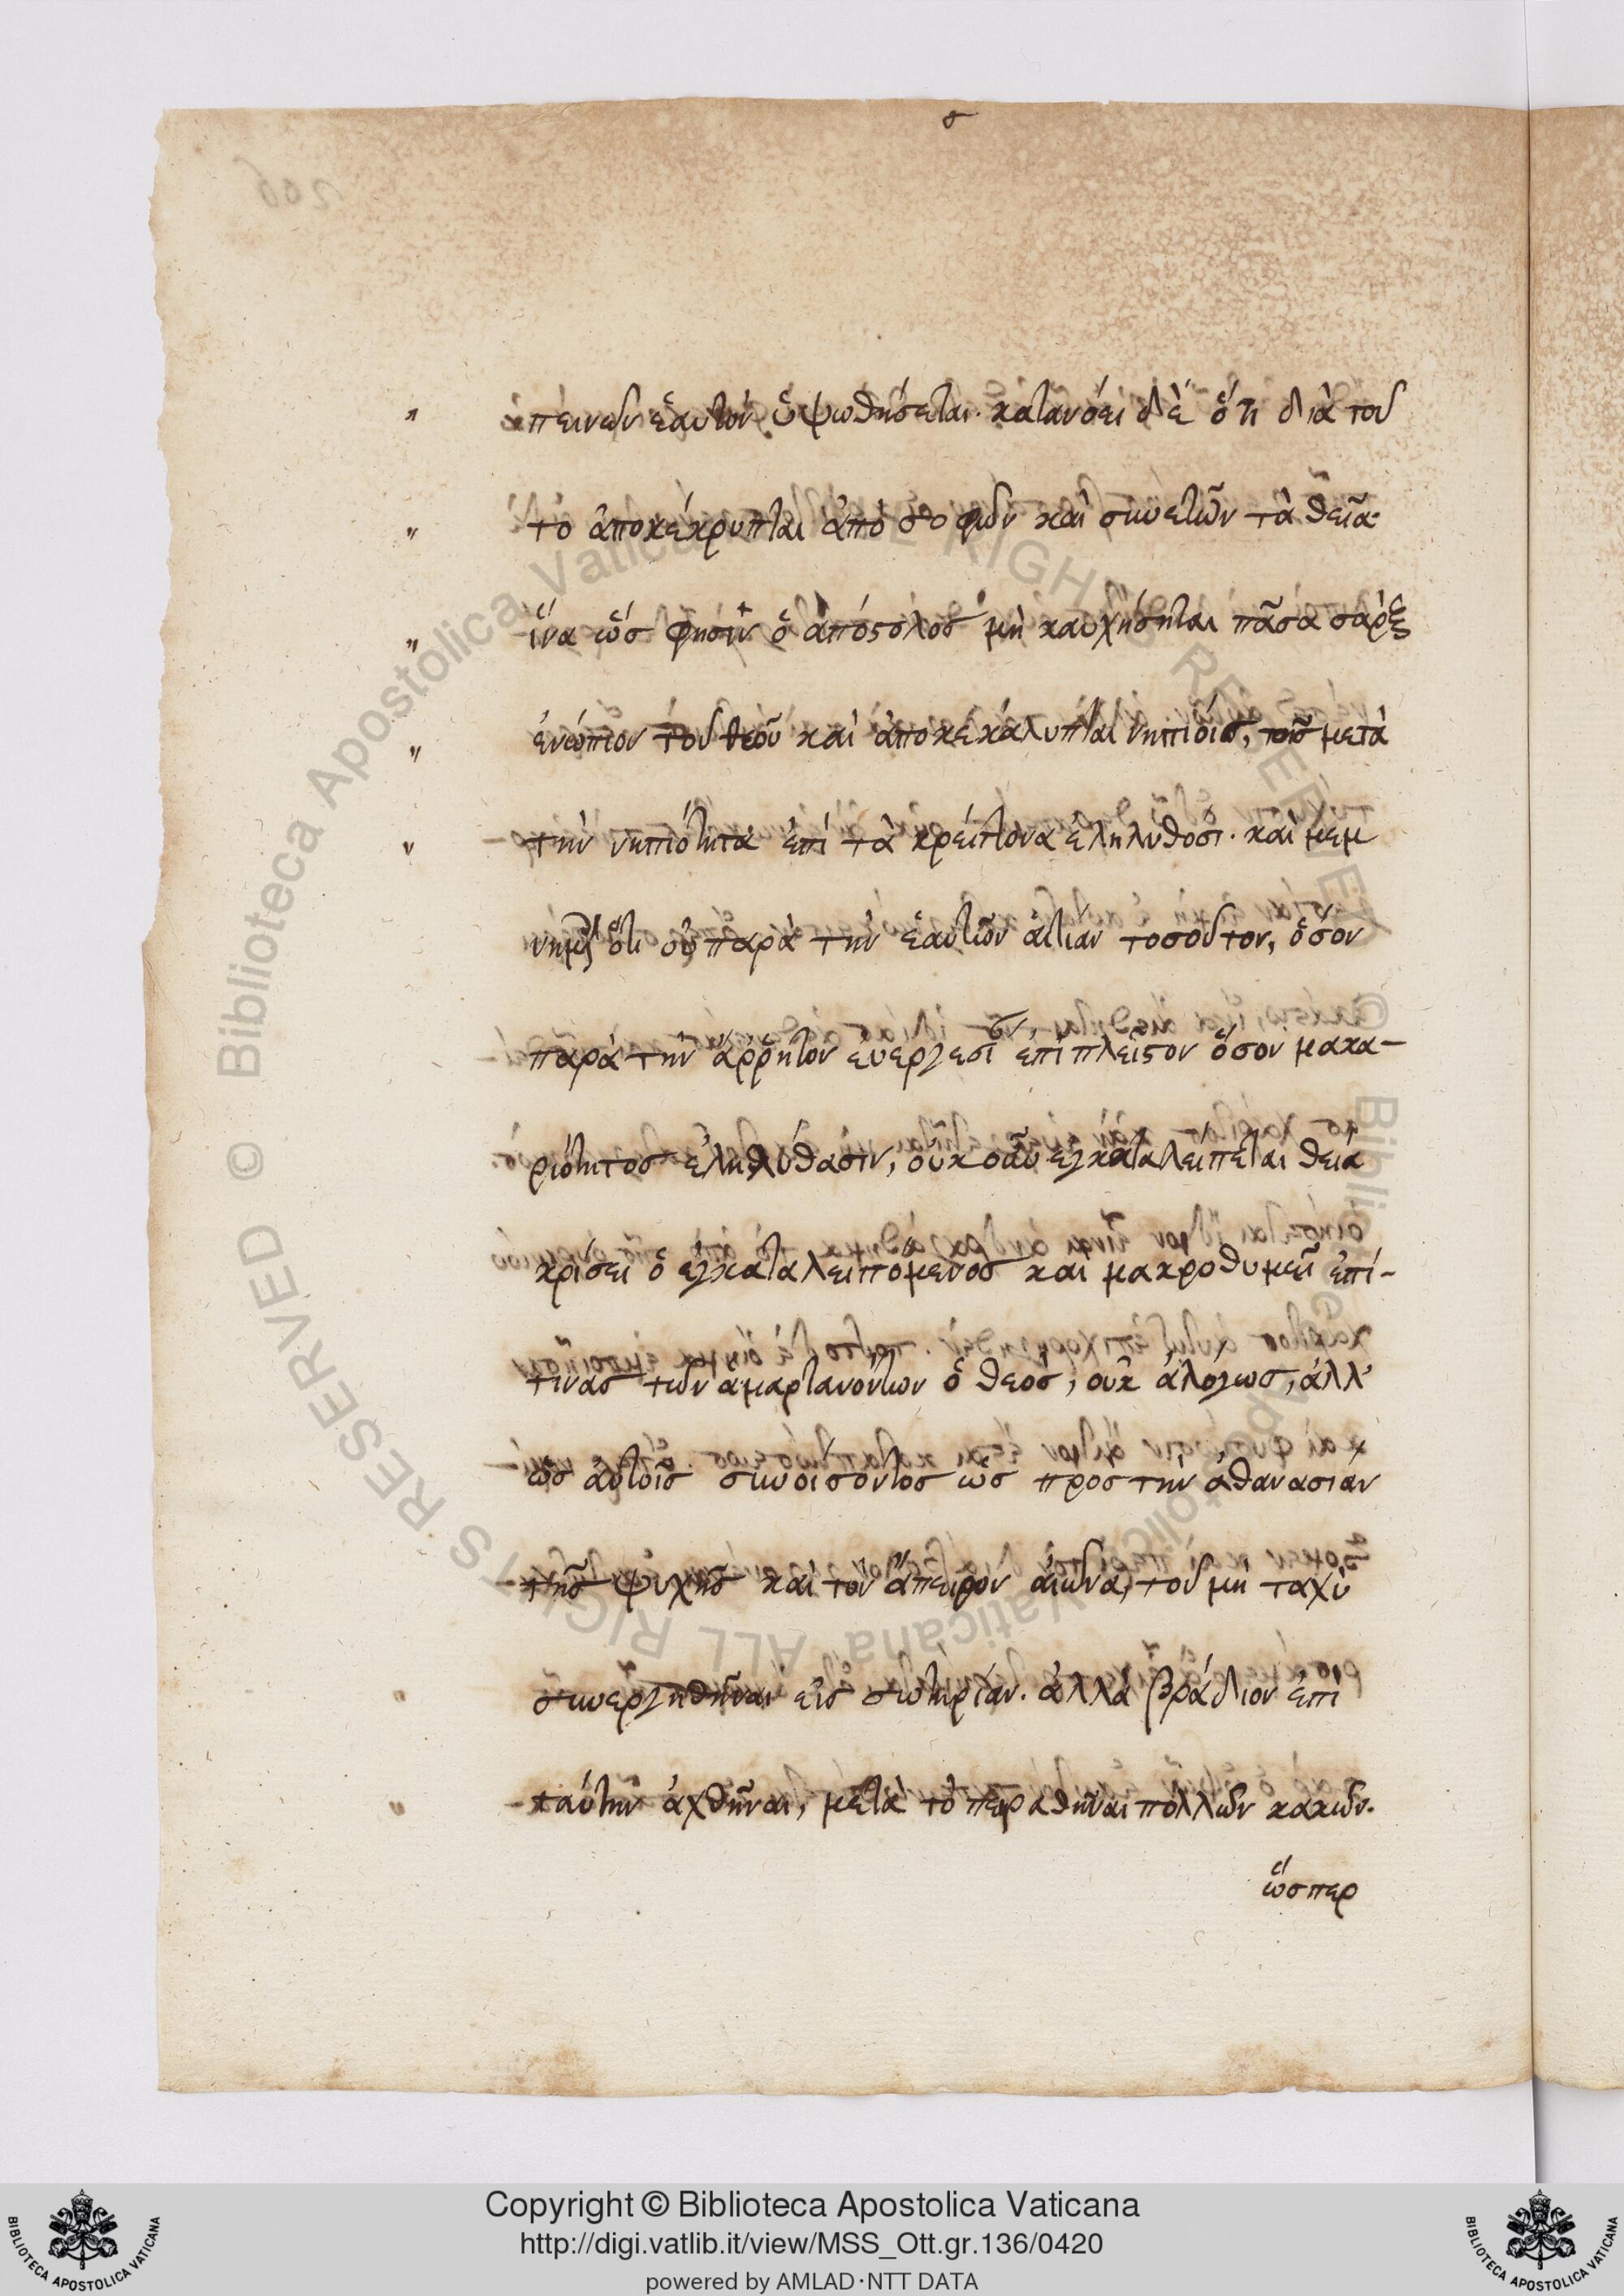 πεινῶν ἑαυτὸν ὑψωθήσεται. κατανόει δὲ ὅτι διὰ τοῦ
το ἀποκέκρυπται ἀπὸ σοφῶν καὶ συνετῶν τὰ θεῖα·
ἵνα ὥς φησιν ὁ ἀπόστολος μὴ καυχήσηται πᾶσα σάρξ
ἐνώπιον τοῦ θεοῦ καὶ ἀποκεκάλυπται νηπίοις, τοῖς μετὰ
τὴν νηπιότητα ἐπὶ τὰ κρείττονα ἐληλυθόσι. καὶ μεμ
ὅτι οὐ παρὰ τὴν ἑαυτῶν αἰτίαν τοσοῦτον, ὅσον
παρὰ τὴν ἄρρητον εὐεργεσίαν, ἐπὶ πλεῖστον ὅσον μακα-
ριότητος ἐληλύθασιν, οὐκοῦν ἐγκαταλείπεται θείᾳ
κρίσει ὁ ἐγκαταλειπόμενος καὶ μακροθυμεῖ ἐπί-
τινας τῶν ἁμαρτανόντων ὁ θεος, οὐκ ἀλόγως, ἀλλ'
ὡς αὐτοῖς συνοίσοντος ὡς προς τὴν ἀθανασίαν
τῆς ψυχῆς καὶ τὸν ἄπειρον αἰῶνα, τοῦ μὴ ταχὺ
συνεργηθῆναι εἰς σωτηρίαν. ἀλλὰ βράδιον ἐπὶ
ταύτην ἀχθῆναι, μετὰ τὸ πειραθῆναι πολλῶν κακῶν.
ὥσπερ
Copyright © Biblioteca Apostolica Vaticana
http://digi.vatlib.it/view/MSS_Ott.gr.136/0420
powered by AMLAD·NTT DATA
BIBLIOTECA APOSTOLICA VATICANA
BIBLIOTECA APOSTOLICA VATICANA
© Biblioteca Apostolica Vaticana ALL RIGHTS RESERVED
© Biblioteca Apostolica Vaticana ALL RIGHTS RESERVED